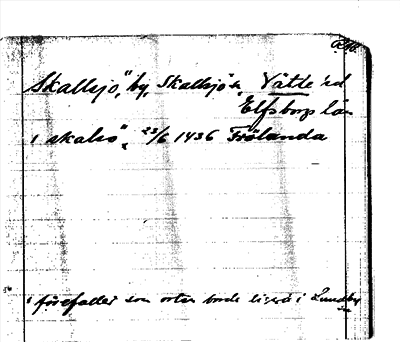 Skallsjö, by, Skallsjö sn, Vätte hd
Elfsborgs län
i skalsiö 23/6 1436 Frölanda
förefaller som orten borde ligga i Lundby